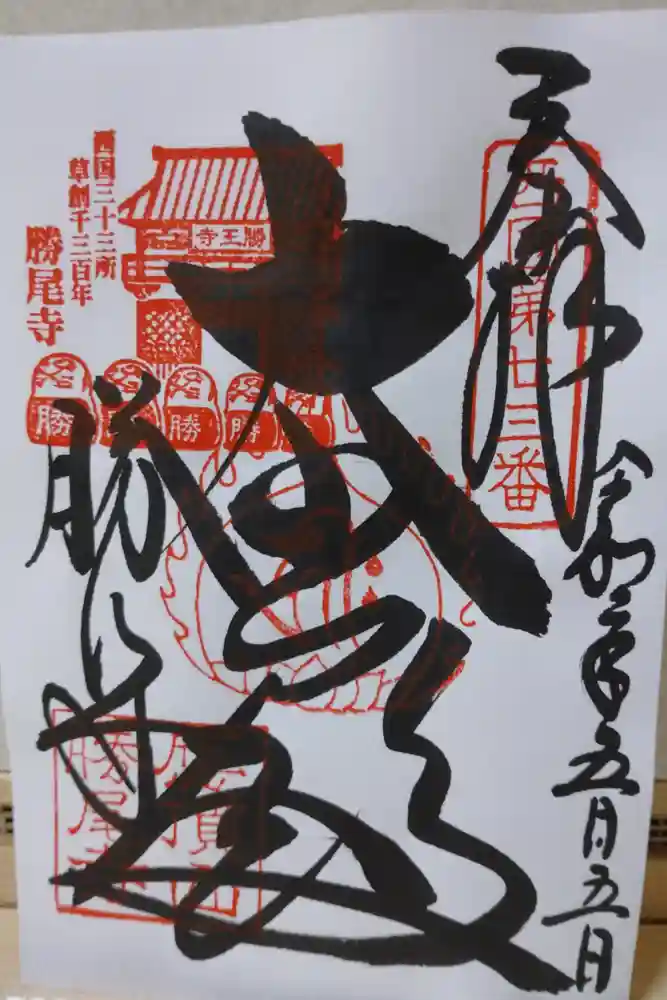 奉拝
西国第廿三番
令和
年五月五日
大悲殿
西国三十三所
草創千三百年
勝尾寺
勝王寺
勝 勝 勝 勝
勝尾寺
勝尾寺